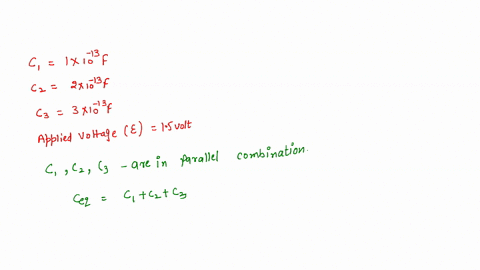 C₁ = 1×10⁻¹³ F
C₂ = 2×10⁻¹³ F
C₃ = 3×10⁻¹³ F
Applied voltage (ε) = 1.5 volt
C₁, C₂, C₃ – are in parallel combination.
Ceq = C₁ + C₂ + C₃